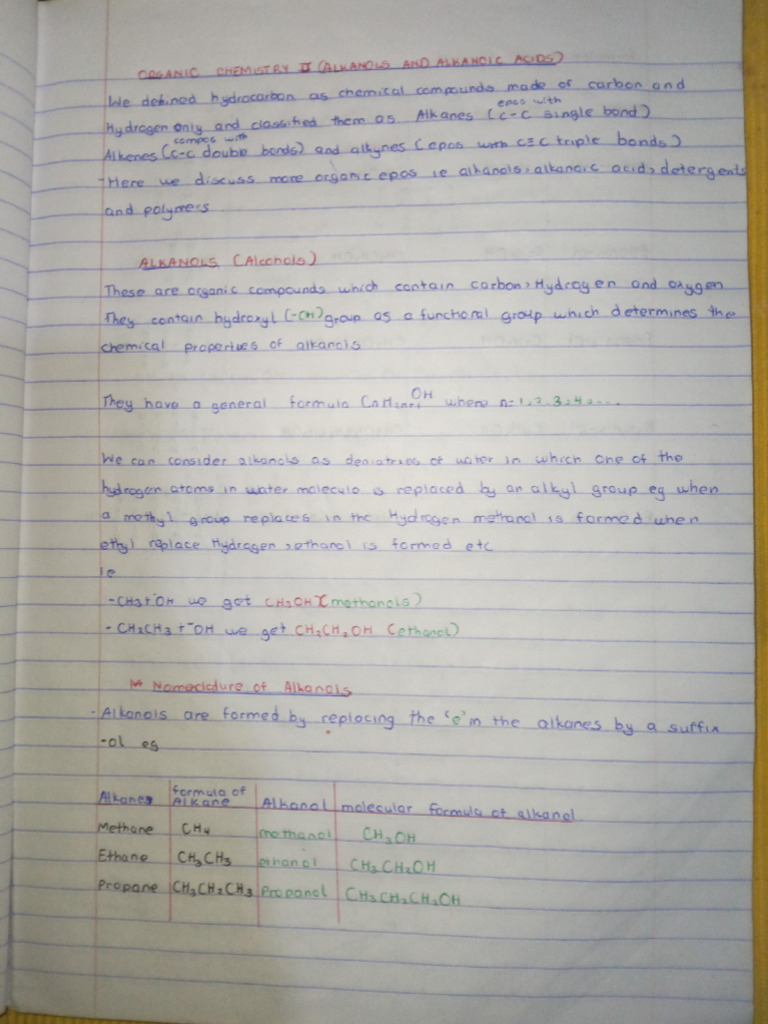 ORGANIC CHEMISTRY II (ALKANOLS AND ALKANOIC ACIDS)
We defined hydrocarbon as chemical compounds made of carbon and
Hydrogen only and classified them as Alkanes (cpos with C-C single bond)
Alkenes (compos with C-C double bonds) and alkynes (cpos with C≡C triple bonds)
-Here we discuss more organic cpos ie alkanols, alkanoic acid, detergents
and polymers
ALKANOLS (Alcohols)
These are organic compounds which contain carbon, Hydrogen and oxygen
They contain hydroxyl (-OH) group as a functional group which determines the
chemical properties of alkanols
They have a general formula CnH2n+1OH where n=1,2,3,4,....
We can consider alkanols as deriatries of water in which one of the
hydrogen atoms in water molecule is replaced by an alkyl group eg when
a methyl group replaces in the Hydrogen methanol is formed when
ethyl replace Hydrogen, ethanol is formed etc
ie
-CH3+⁻OH we get CH3OH (methanols)
- CH2CH3 +⁻OH we get CH3CH2OH (ethanol)
Nomeclature of Alkanols
- Alkanols are formed by replacing the 'e' in the alkanes by a suffix
-ol eg
Alkanes formula of Alkane Alkanol molecular formula of alkanol
Methane CH4 methanol CH3OH
Ethane CH3CH3 ethanol CH3CH2OH
Propane CH3CH2CH3 Propanol CH3CH2CH2OH